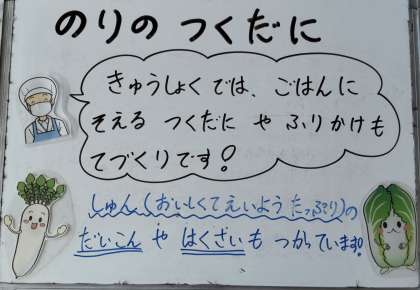 のりの つくだに
きゅうしょくでは、ごはんに
そえる つくだに や ふりかけも
てづくりです!
しゅん(おいしくてえいようたっぷり)の
だいこん や はくさいも つかっています!